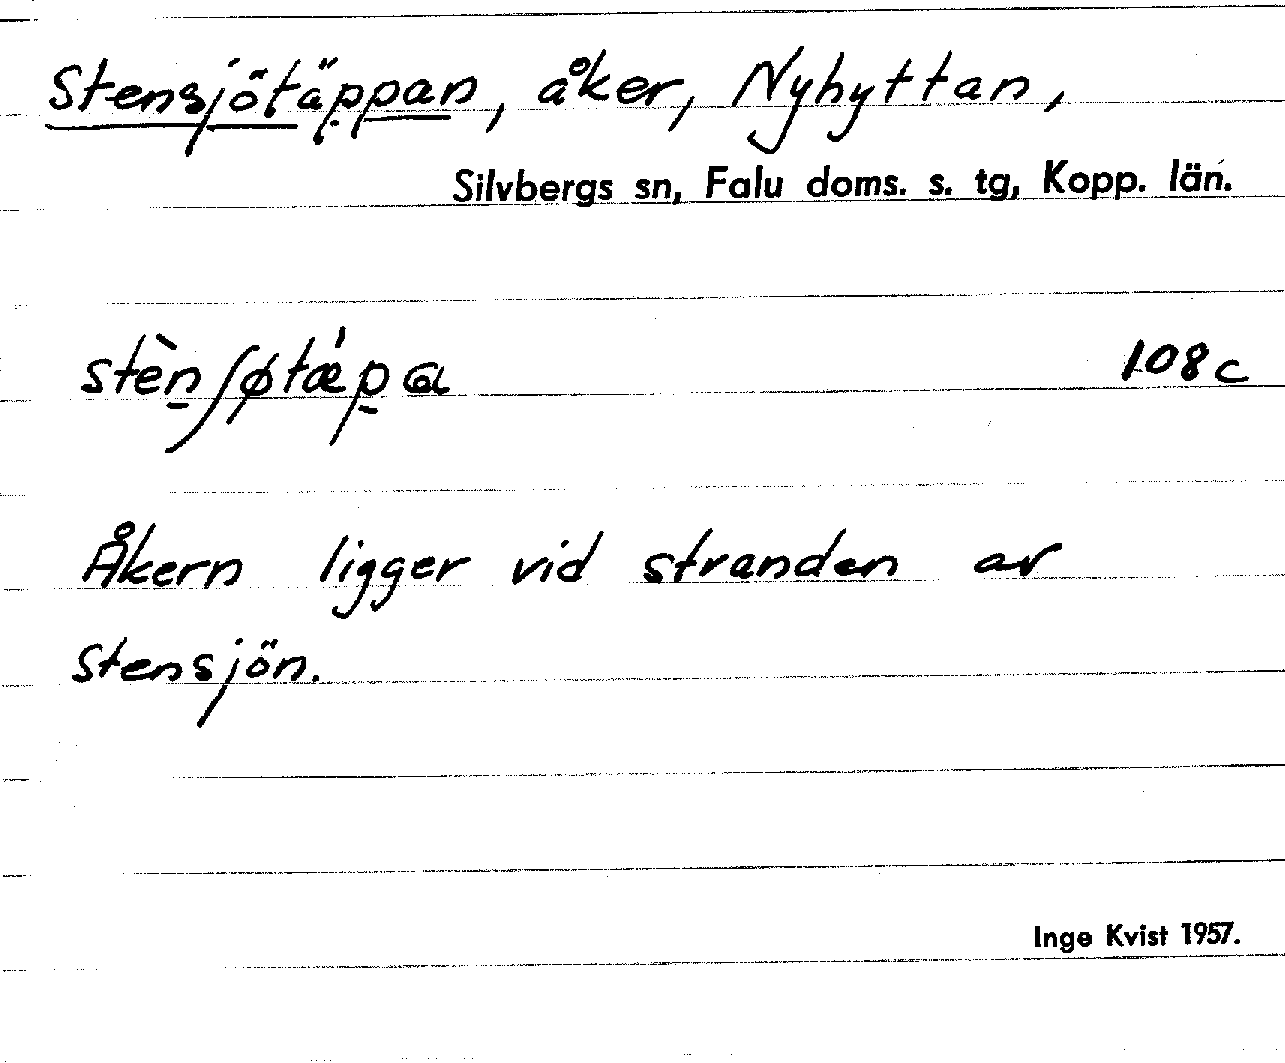 Stensjötäppan, åker, Nyhyttan,
Silvbergs sn, Falu doms. s. tg, Kopp. län.
stèn̠ʃøtæ̍p̠ɷ 108c
Åkern ligger vid stranden av
Stensjön.
Inge Kvist 1957.